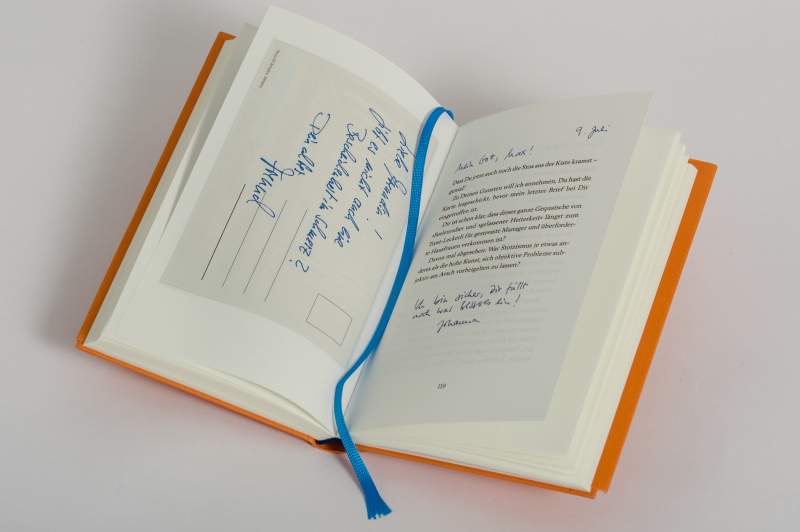 es nicht auch eine
in Schwarz?
Dein alter
9. Juli
Mein Gott, Max!
Dass Du jetzt auch noch die Stoa aus der Kiste kramst –
genial!
Zu Deinen Gunsten will ich annehmen, Du hast die
Karte losgeschickt, bevor mein letzter Brief bei Dir
eingetroffen ist.
Dir ist schon klar, dass dieses ganze Gequatsche von
»Seelenruhe« und »gelassener Heiterkeit« längst zum
Trost-Leckerli für gestresste Manager und überforder-
te Hausfrauen verkommen ist?
Davon mal abgesehen: War Stoizismus je etwas an-
deres als die hohe Kunst, sich objektive Probleme sub-
jektiv am Arsch vorbeigehen zu lassen?
Ich bin sicher, Dir fällt
noch was Besseres ein!
Johanna
119